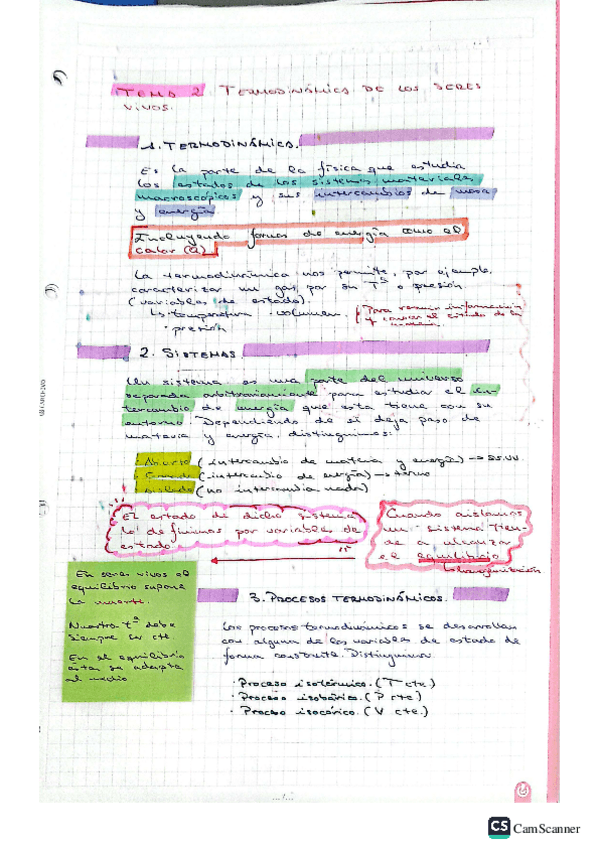 TEMA 2. TERMODINÁMICA DE LOS SERES
VIVOS.
1. TERMODINÁMICA.
Es la parte de la física que estudia
los estados de los sistemas materiales
macroscópicos y sus intercambios de masa
y energía
Incluyendo formas de energía como el
calor (Q)
La termodinámica nos permite, por ejemplo,
caracterizar un gas, por su Tª o presión
(variables de estado).
↳ temperatura · volumen.
· presión
Para reunir información
y conocer el estado de la
2. SISTEMAS.
Un sistema es una parte del universo
separada arbitrariamente para estudiar el in-
tercambio de energía que esta tiene con su
entorno. Dependiendo de si deja paso de
materia y energía, distinguimos:
· Abierto (intercambio de materia y energía) → SS.VV.
· Cerrado (intercambio de energía) → termo
· Aislado (no intercambia nada)
El estado de dicho sistema
lo definimos por variables de
estado.
Cuando aislamos
un sistema tien-
de a alcanzar
el equilibrio
↳ homogeneización
En seres vivos el
equilibrio supone
la muerte.
Nuestra tª debe
siempre ser cte.
En el equilibrio
esta se adapta
al medio
3. PROCESOS TERMODINÁMICOS.
Los procesos termodinámicos se desarrollan
con alguna de las variables de estado de
forma constante. Distinguimos:
· Proceso isotérmico. (T cte.)
· Proceso isobárico. (P cte)
· Proceso isocórico. (V cte.)
.../...
CS CamScanner